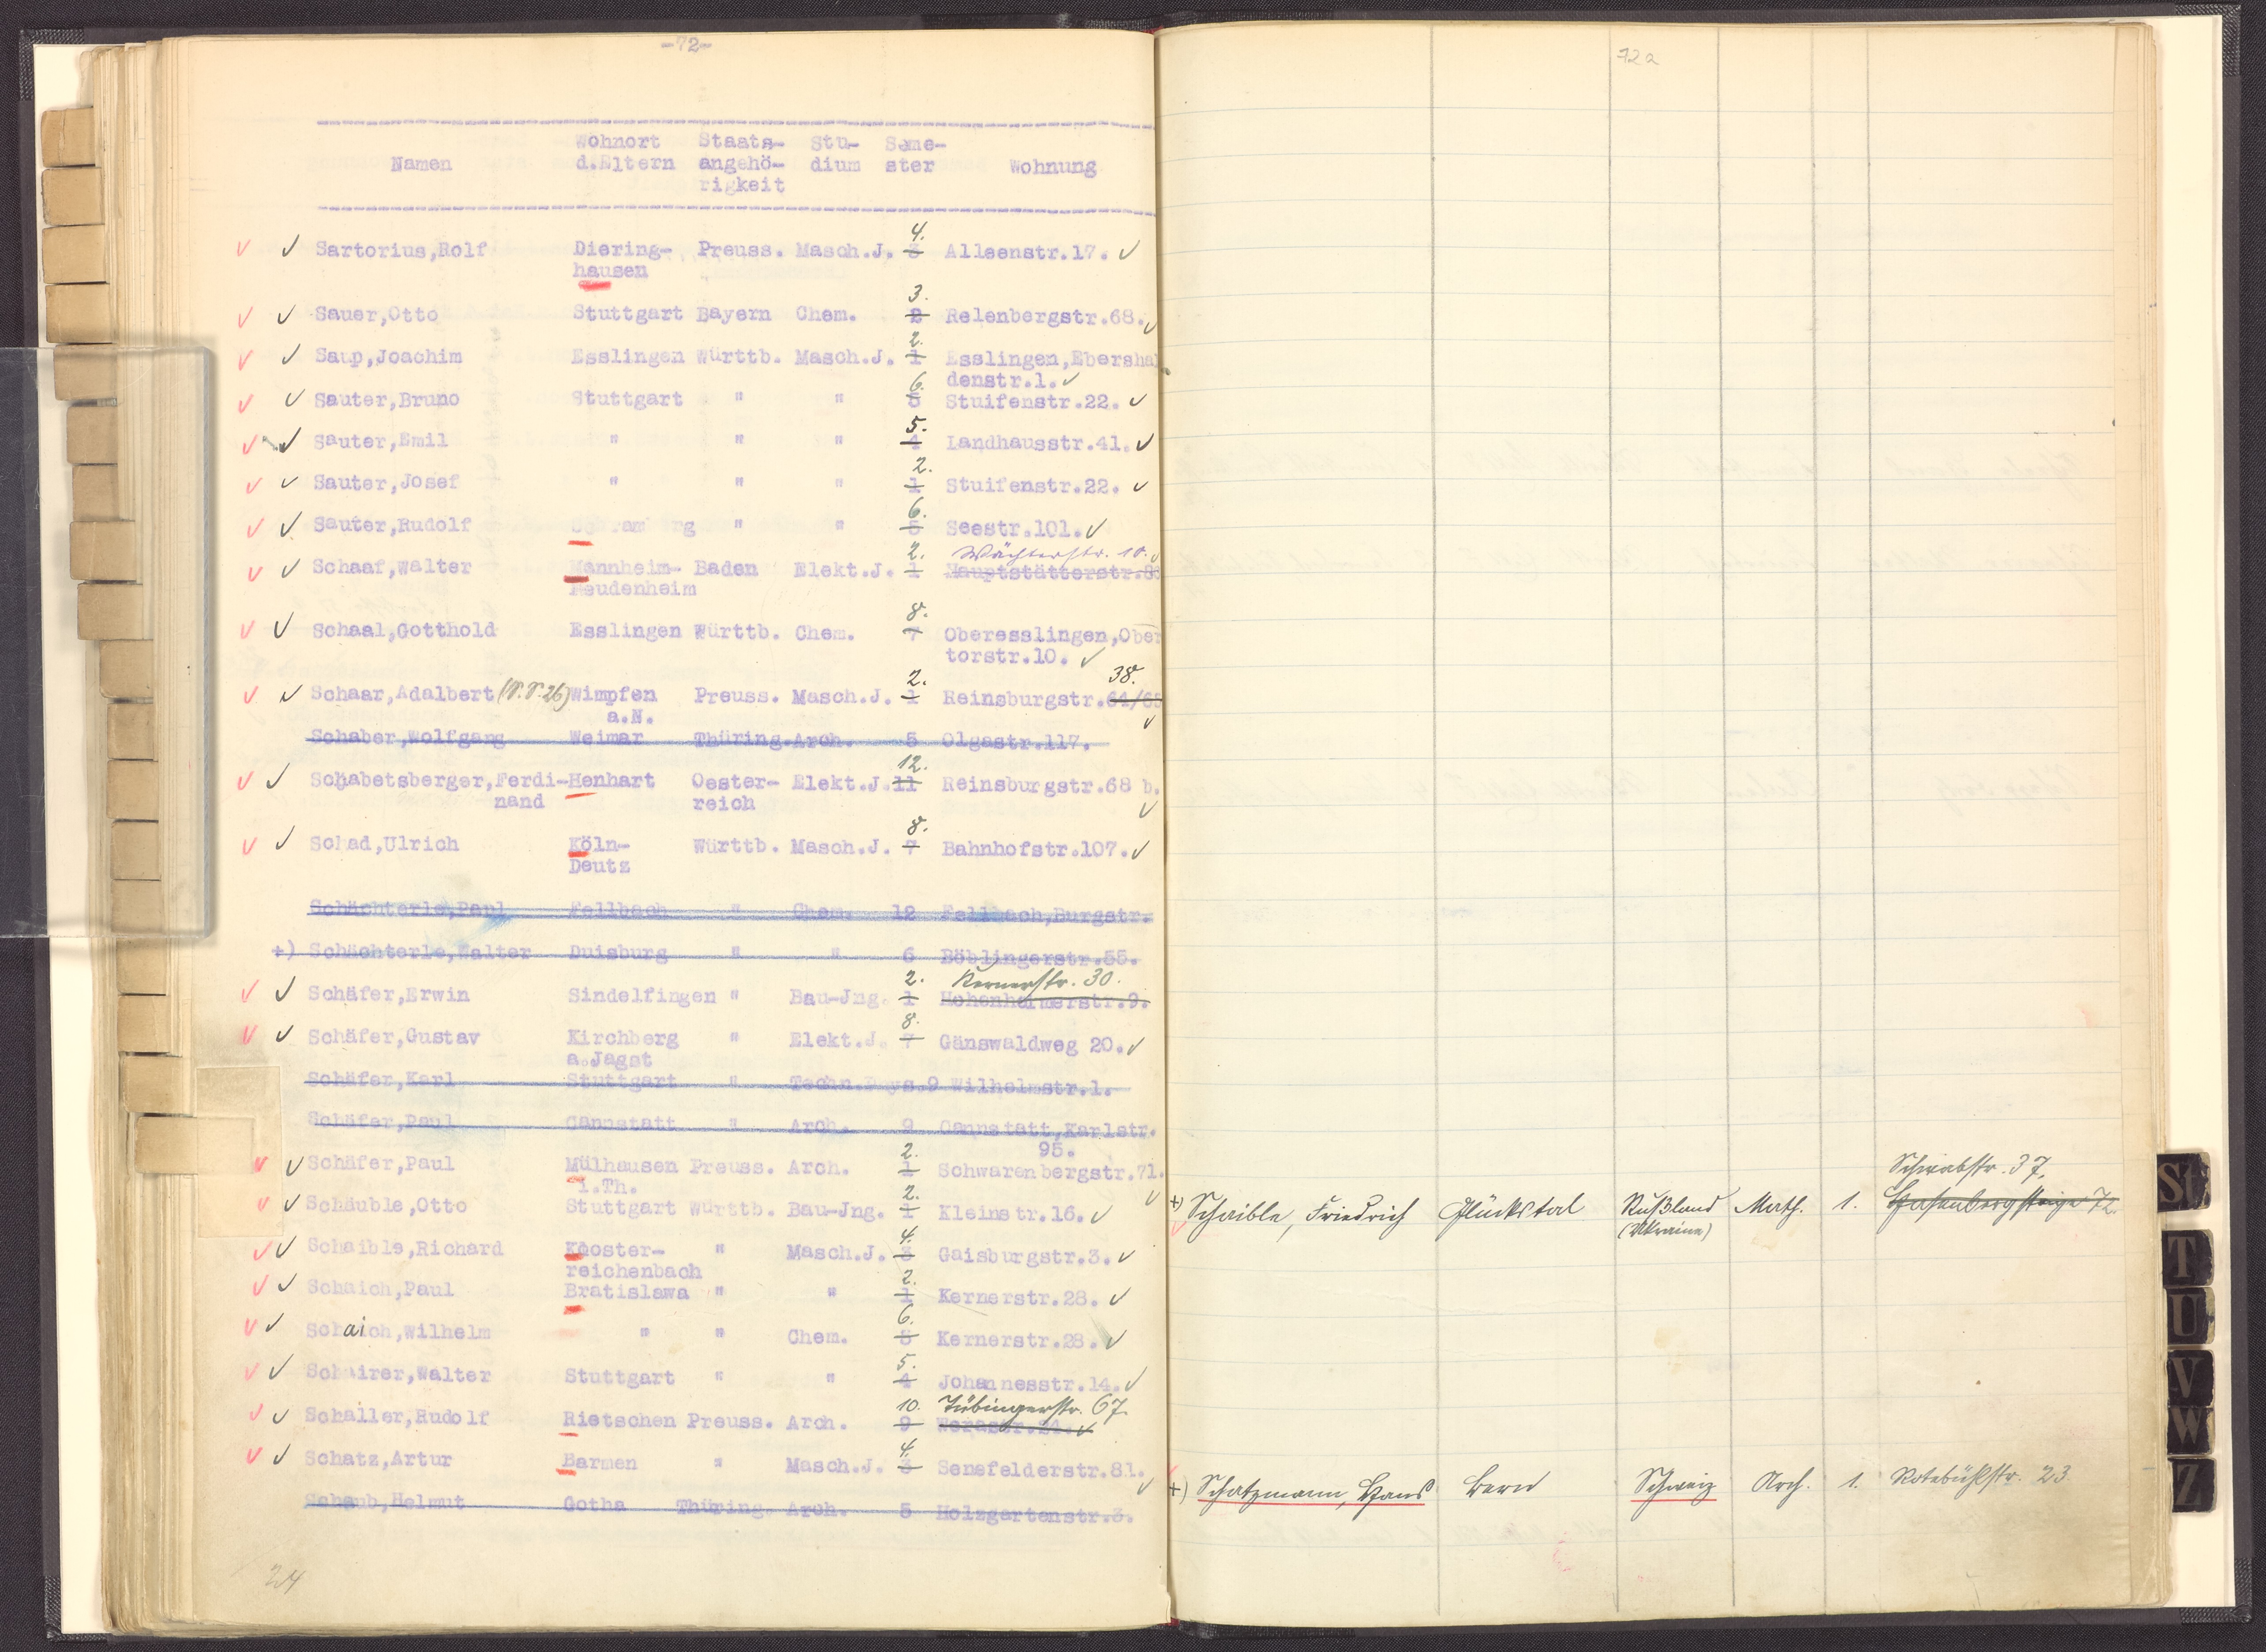 -72-
Wohnort Staats- Stu- Seme-
Namen d.Eltern angehö- dium ster Wohnung
rigkeit
4.
Sartorius,Rolf Diering- Preuss. Masch.J. 3 Alleenstr.17.
hausen
3.
Sauer,Otto Stuttgart Bayern Chem. 2 Relenbergstr.68.
2.
Saup,Joachim Esslingen Württb. Masch.J. 1 Esslingen,Ebershal
denstr.1.
6.
Sauter,Bruno Stuttgart " " 5 Stuifenstr.22.
5.
Sauter,Emil " " " 4 Landhausstr.41.
2.
Sauter,Josef " " " 1 Stuifenstr.22.
6.
Sauter,Rudolf Schramberg " " 5 Seestr.101.
2. Wächterstr. 10.
Schaaf,Walter Mannheim- Baden Elekt.J. 1 Hauptstätterstr.
Feudenheim
8.
Schaal,Gotthold Esslingen Württb. Chem. 7 Oberesslingen,Ober
torstr.10.
2. 38.
Schaar,Adalbert Wimpfen Preuss. Masch.J. 1 Reinsburgstr.
a.N.
Schaber,Wolfgang Weimar Thüring.Arch. 5 Olgastr.117.
12.
Schabetsberger,Ferdi-Henhart Oester- Elekt.J.11 Reinsburgstr.68 b.
nand reich
8.
Schad,Ulrich Köln- Württb. Masch.J. 7 Bahnhofstr.107.
Deutz
Schächterle,Paul Fellbach " Chem. 12 Fellbach,Burgstr.
+) Schächterle,Walter Duisburg " " 6 Böblingerstr.55.
2. Kernerstr. 30.
Schäfer,Erwin Sindelfingen " Bau-Jng. 1 Hohenheimerstr.9.
8.
Schäfer,Gustav Kirchberg " Elekt.J. 7 Gänswaldweg 20.
a.Jagst
Schäfer,Karl Stuttgart " Techn.Phys.9 Wilhelmstr.1.
Schäfer,Paul Cannstatt " Arch. 9 Cannstatt,Karlstr.
95.
2.
Schäfer,Paul Mülhausen Preuss. Arch. 1 Schwarenbergstr.71.
i.Th.
2.
Schäuble,Otto Stuttgart Württb. Bau-Jng. 1 Kleinstr.16.
4.
Schaible,Richard Klooster- " Masch.J. 3 Gaisburgstr.3.
reichenbach
2.
Schaich,Paul Bratislawa " " 1 Kernerstr.28.
6.
Schaich,Wilhelm " " Chem. 5 Kernerstr.28.
5.
Schairer,Walter Stuttgart " " 4 Johannesstr.14.
10. Tübingerstr. 67.
Schaller,Rudolf Rietschen Preuss. Arch. 9
4.
Schatz,Artur Barmen " Masch.J. 3 Senefelderstr.81.
Schaub,Helmut Gotha Thüring. Arch. 5 Holzgartenstr.3.
24
72a
Schwabstr. 37.
+) Schaible, Friedrich Glückstal Rußland Math. 1. Hasenbergsteige 72.
(Ukraine)
+) Schatzmann, Hans Bern Schweiz Arch. 1. Rotebühlstr. 23.
St
T
U
V
W
Z